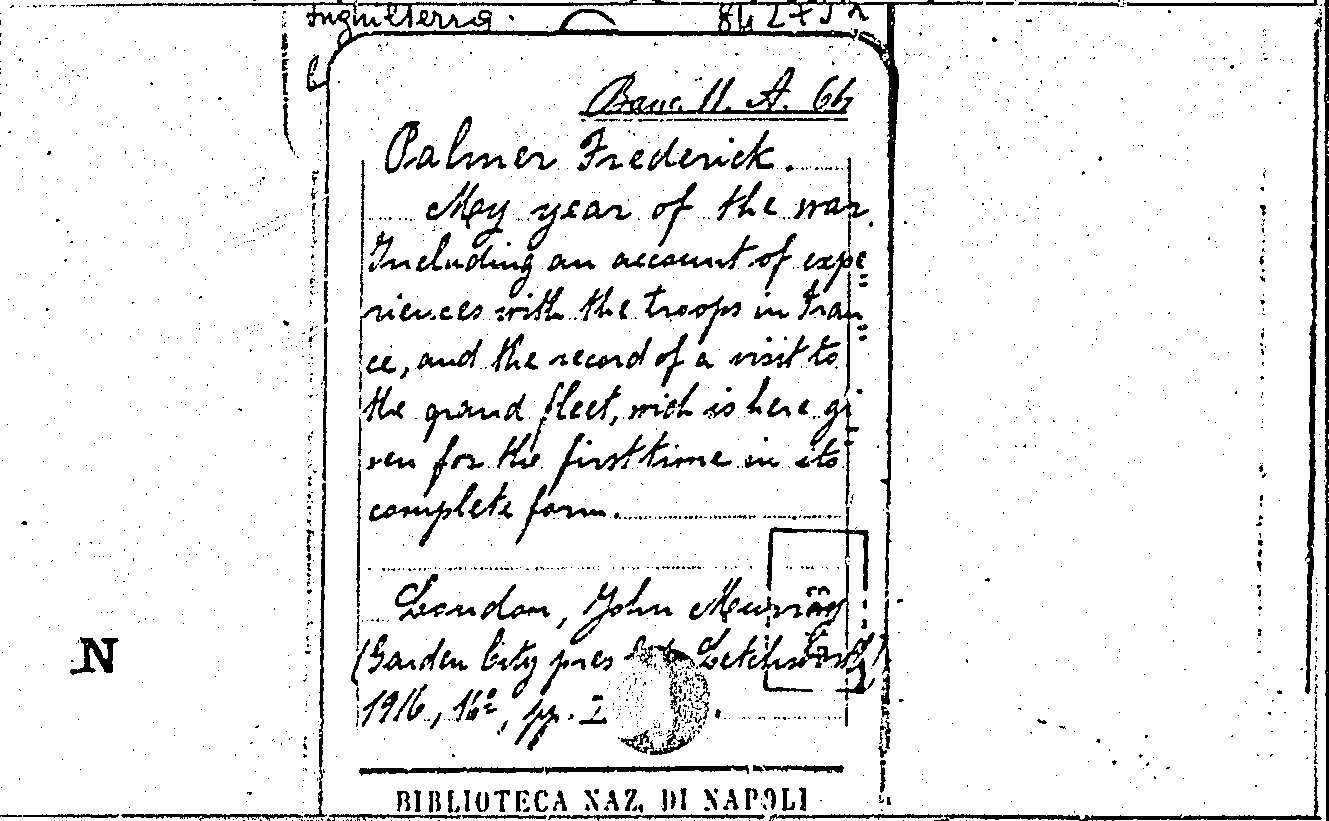 Inghilterra. 842752
Banc. II. A. 64
Palmer Frederick.
My year of the war.
Including an account of expe=
riences with the troops in Fran=
ce, and the record of a visit to
the grand fleet, wich is here gi=
ven for the first time in its
complete form.
London, John Murray
(Garden City press Letchworth)
N
1916, 16°, pp.
BIBLIOTECA NAZ. DI NAPOLI